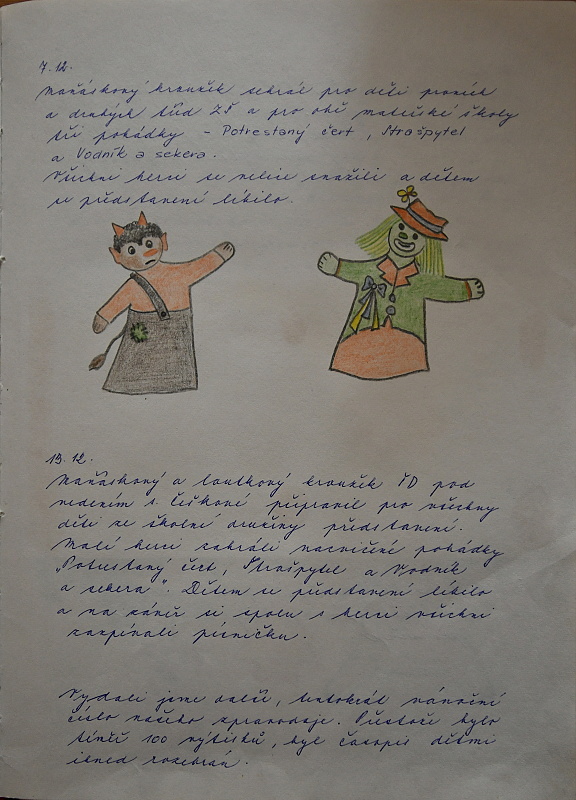 7.12.
Maňáskový kroužek sehrál pro děti prvních
a druhých tříd ZŠ a pro obě mateřské školy
tři pohádky - Potrestaný čert, Strašpytel
a Vodník a sekera.
Všichni herci se velice snažili a dětem
se představení líbilo.
13.12.
Maňáskový a loutkový kroužek ŠD pod
vedením s. Češkové připravil pro všechny
děti ze školní družiny představení.
Malí herci zahráli nacvičené pohádky
„Potrestaný čert, Strašpytel a Vodník
a sekera". Dětem se představení líbilo
a na závěr si spolu s herci všichni
zazpívali písničku.
Vydali jsme další, tentokrát vánoční
číslo našeho zpravodaje. Přestože bylo
téměř 100 výtisků, byl časopis dětmi
ihned rozebrán.